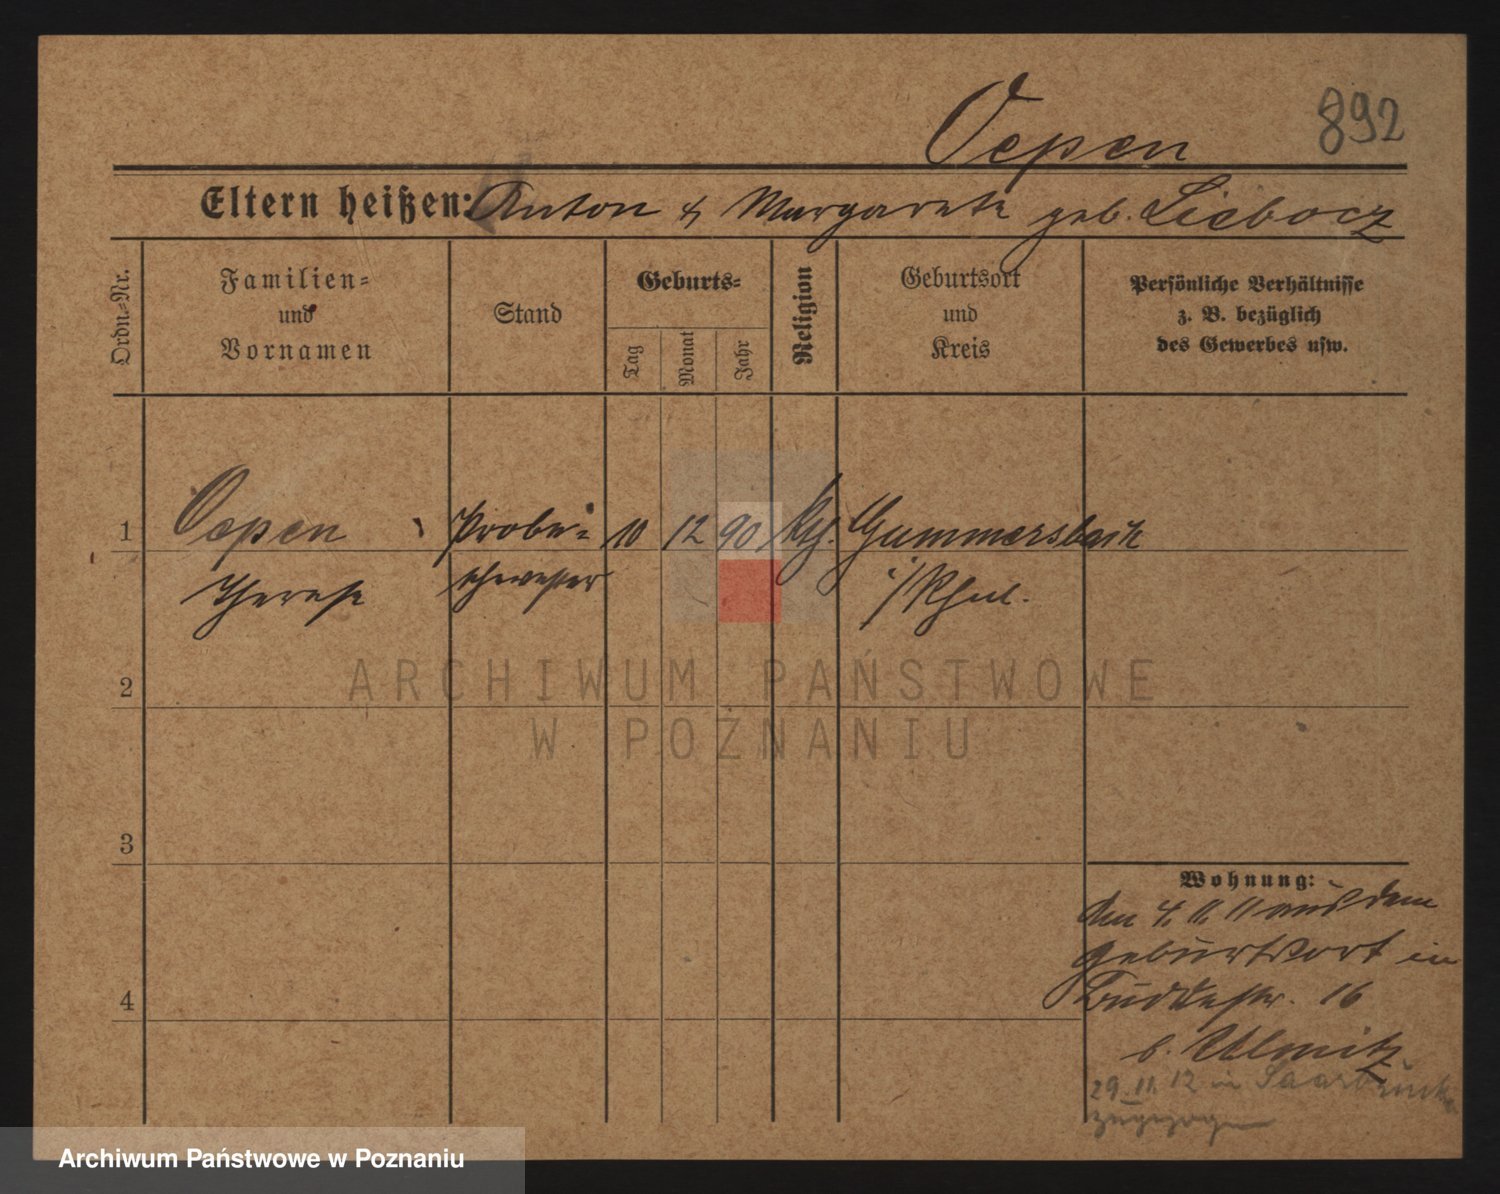 Oepen
892
Eltern heißen: Anton & Margarete geb. Liebocz
Ordn.=Nr.
Familien=
und
Vornamen
Stand
Geburts=
Tag
Monat
Jahr
Religion
Geburtsort
und
Kreis
Persönliche Verhältnisse
z. B. bezüglich
des Gewerbes usw.
1
Oepen
Probe=
10
12
90
Gummersbach
Therese
schwester
2
3
4
Wohnung:
den 4. 11. 11 aus dem
Geburtsort in
16
b.
29. 11. 12 in Saarbrücken
zugezogen
ARCHIWUM PAŃSTWOWE
W POZNANIU
Archiwum Państwowe w Poznaniu